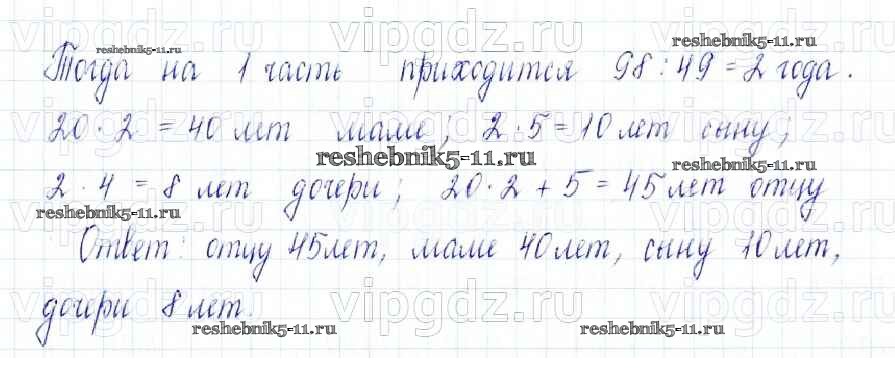 vipgdz.ru vipgdz.ru vipgdz.ru
reshebnik5-11.ru reshebnik5-11.ru
Тогда на 1 часть приходится 98 : 49 = 2 года.
vipgdz.ru vipgdz.ru vipgdz.ru
20 · 2 = 40 лет маме; 2 · 5 = 10 лет сыну;
reshebnik5-11.ru reshebnik5-11.ru
2 · 4 = 8 лет дочери; 20 · 2 + 5 = 45 лет отцу
reshebnik5-11.ru
vipgdz.ru vipgdz.ru vipgdz.ru
Ответ: отцу 45 лет, маме 40 лет, сыну 10 лет,
дочери 8 лет.
vipgdz.ru vipgdz.ru vipgdz.ru
reshebnik5-11.ru reshebnik5-11.ru